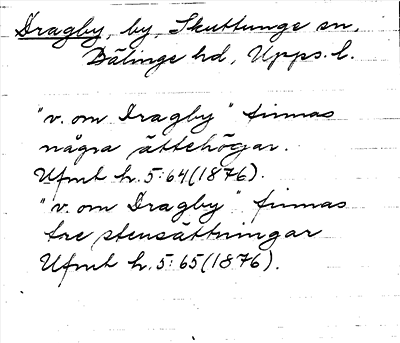 Dragby, by, Skuttunge sn,
Bälinge hd, Upps. l.
"v. om Dragby" finnas
några ättehögar.
Ufmt h. 5:64 (1876).
"v. om Dragby" finnas
tre stensättningar
Ufmt h. 5:65 (1876).